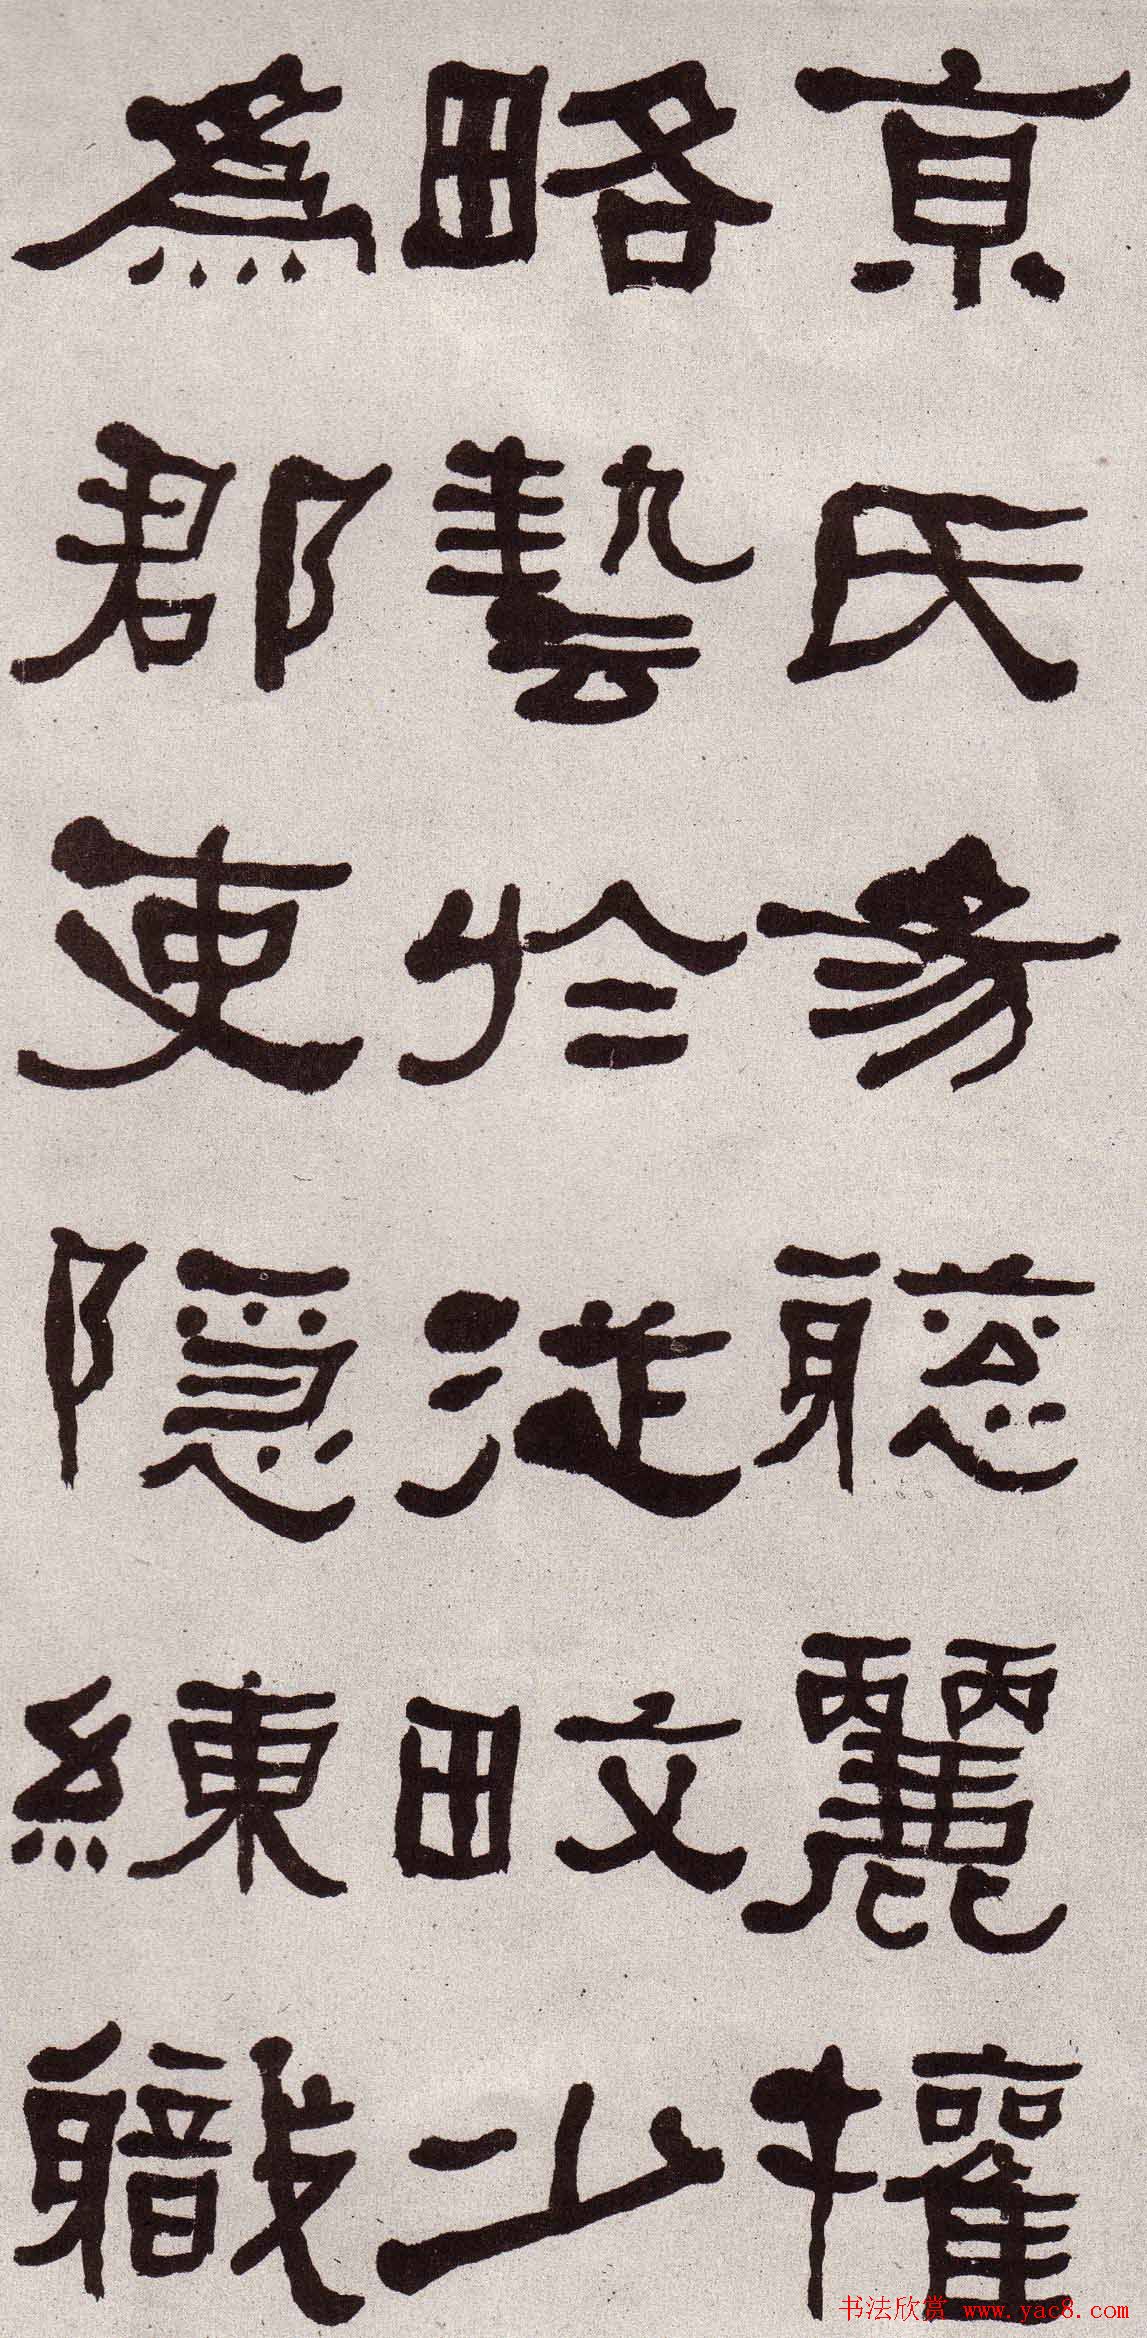 京氏易聰麗權
略藝於從畋少
爲郡吏隱練職
书法欣赏 www.yac8.com